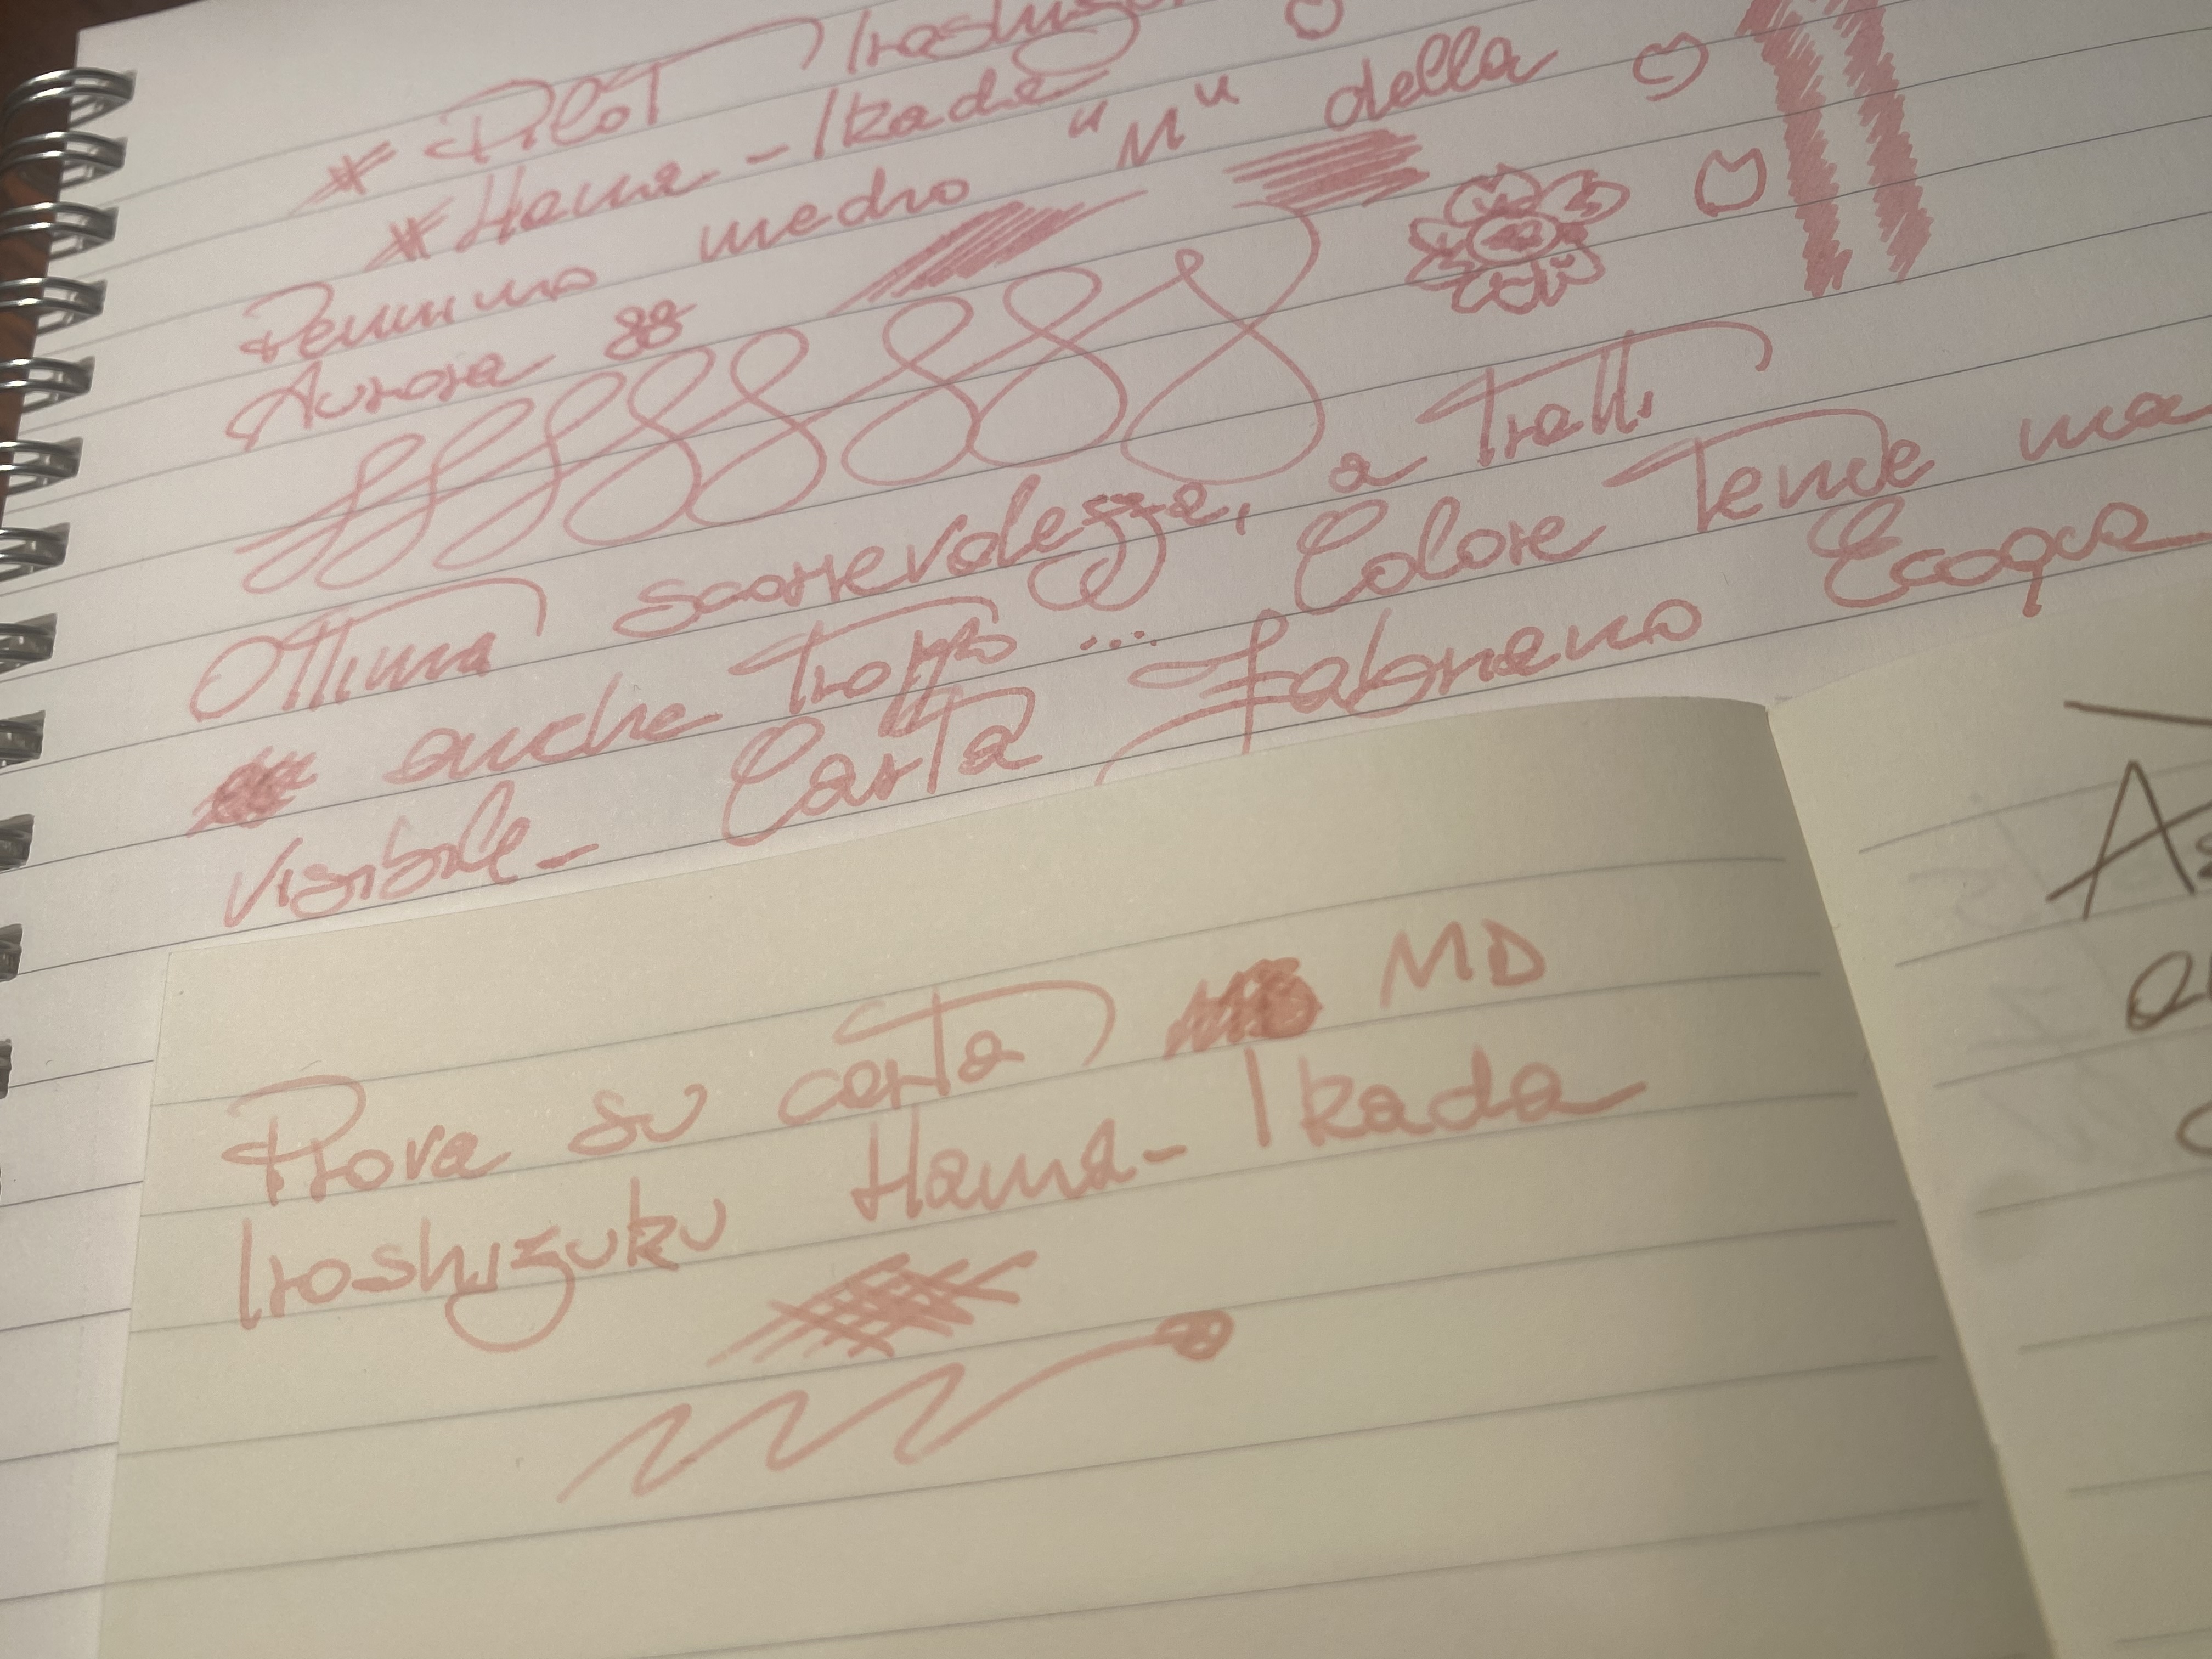 * Pilot Iroshizu
* Hama-Ikada
Pennino medio "M" della
Aurora 88
Ottima scorrevolezza, a tratti
anche troppo... Colore tenue ma
visibile- Carta Fabriano Ecoqua
Prova su carta MD
Iroshizuku Hama-Ikada